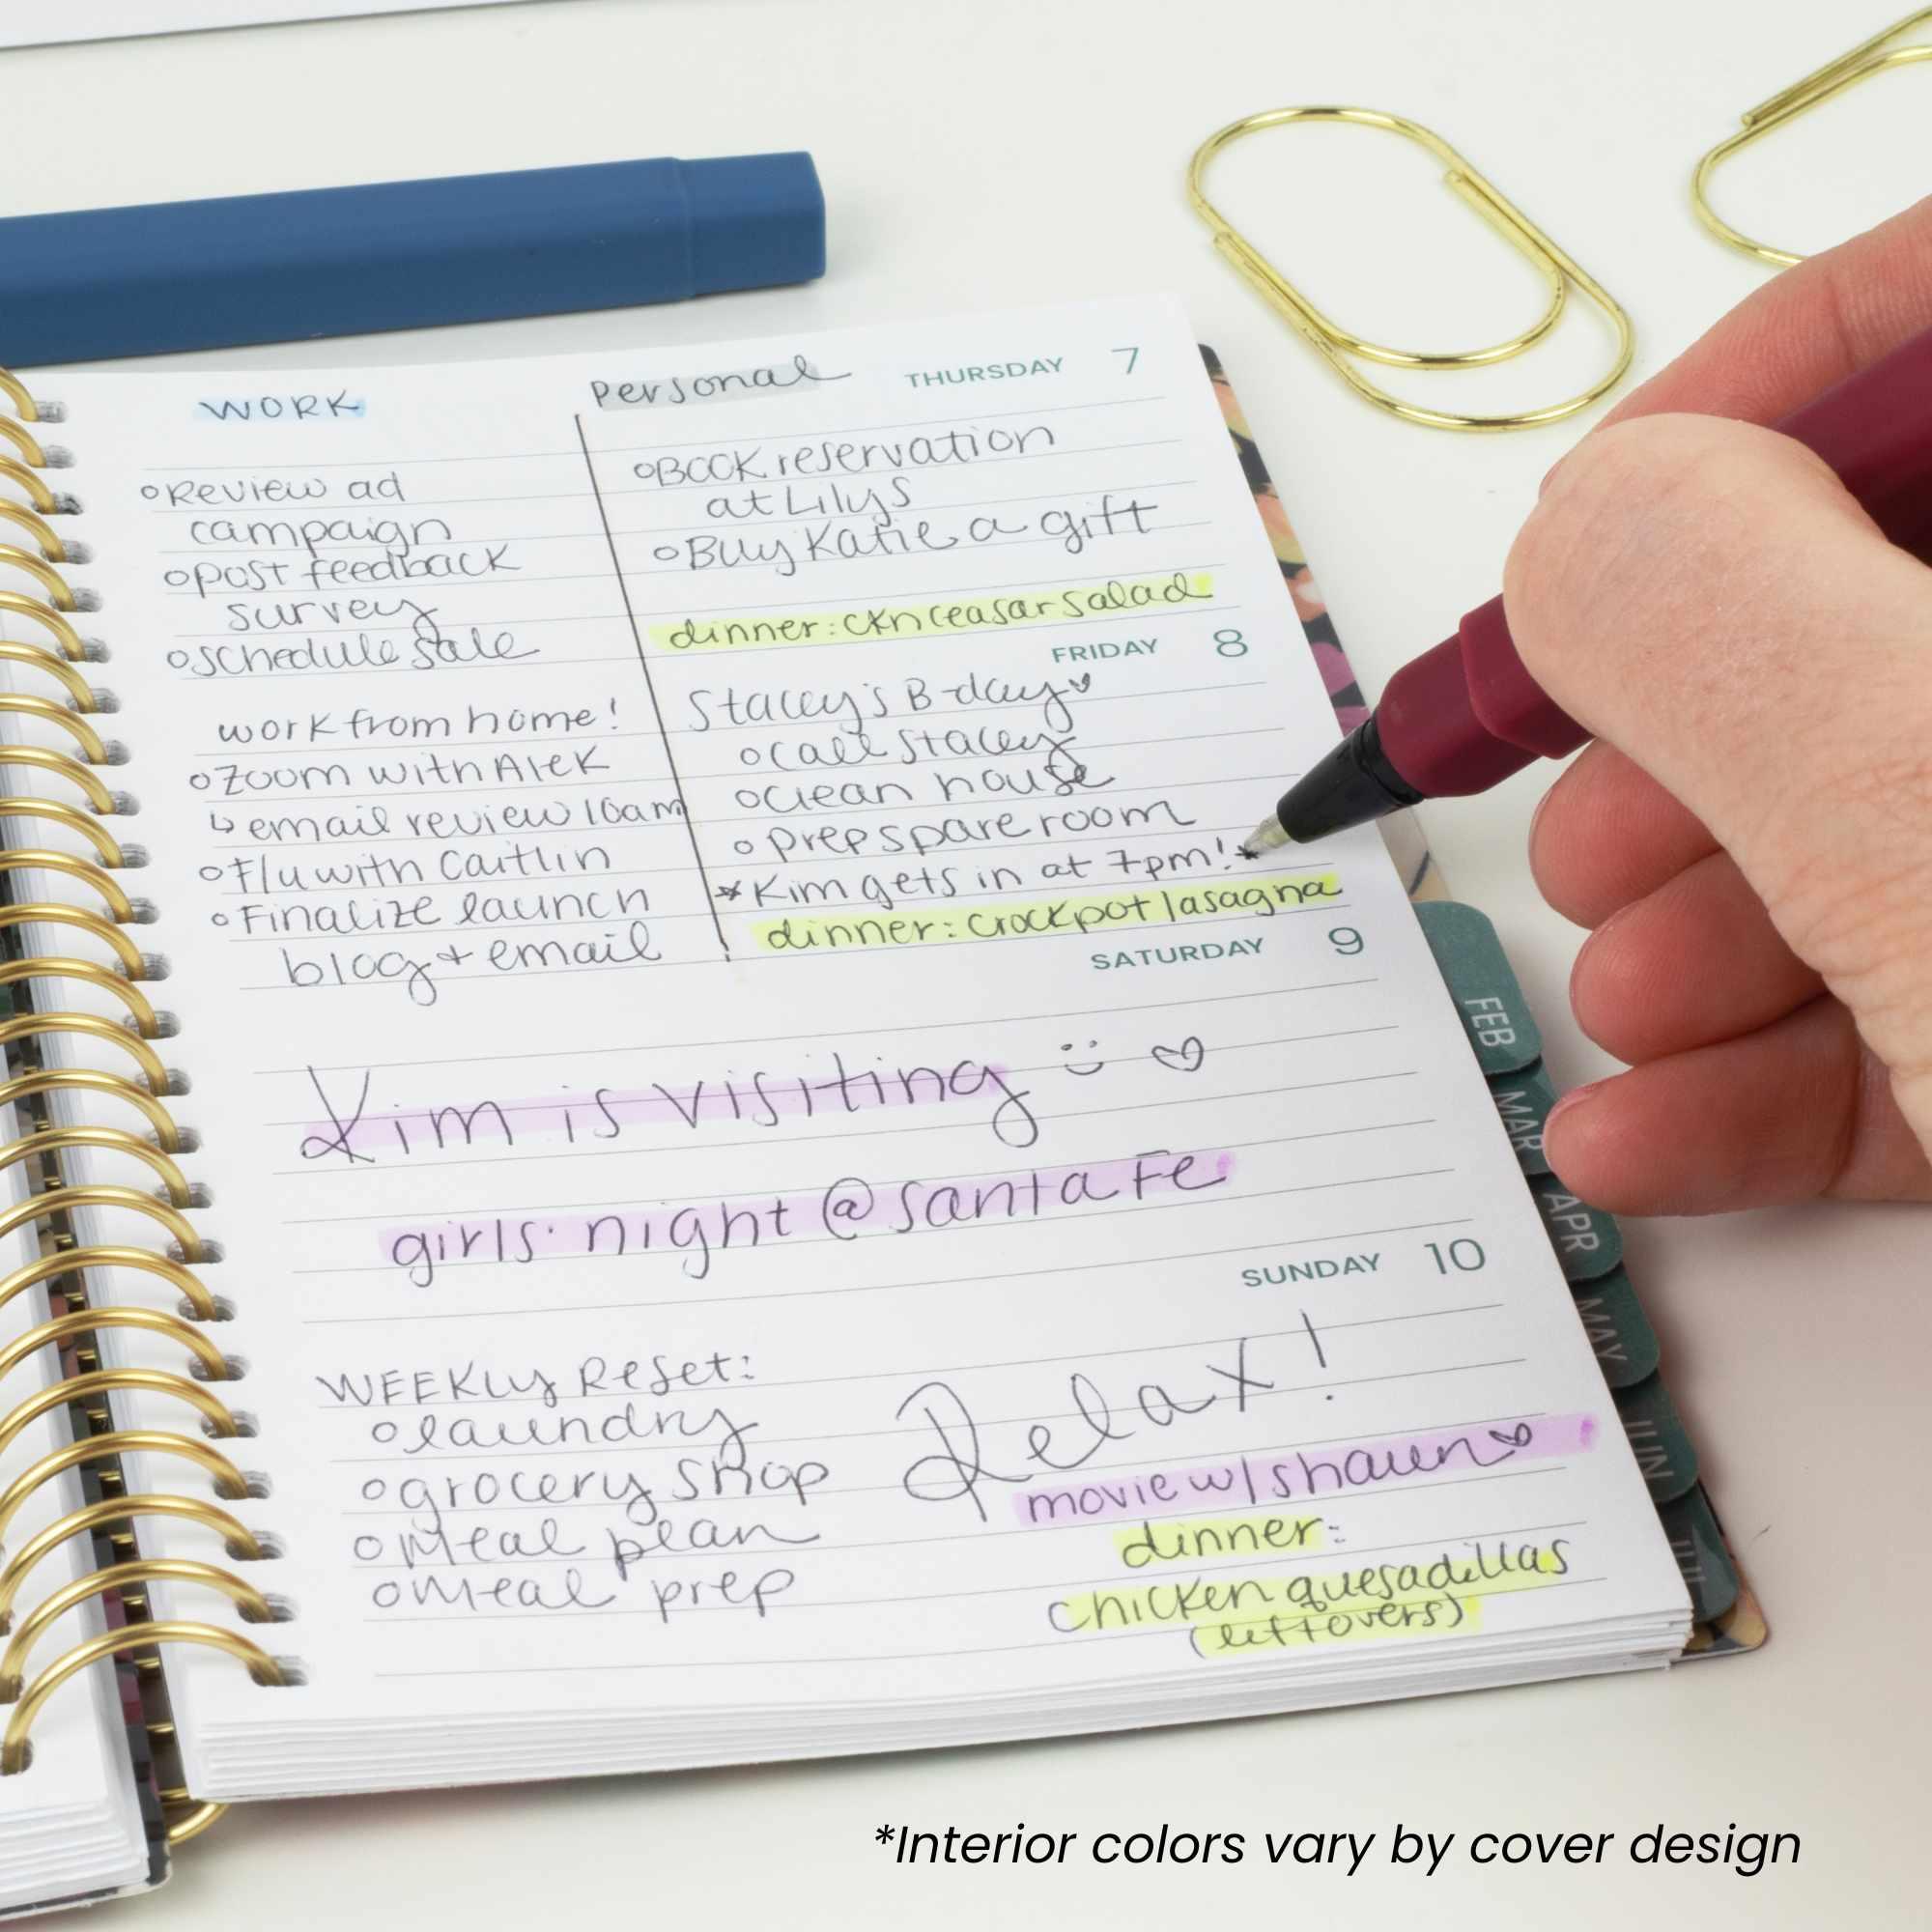 WORK
Personal
THURSDAY 7
oReview ad
campaign
opost feedback
survey
oschedule sale
oBOOK reservation
at Lilys
oBuy Katie a gift
dinner: ckn ceasar salad
FRIDAY 8
work from home!
oZoom with Alek
↳ email review 10am
oF/u with Caitlin
oFinalize launch
blog + email
Stacey's B-day♥
ocall stacey
oclean house
oprep spare room
*Kim gets in at 7pm!*
dinner: crockpot lasagna
SATURDAY 9
Kim is visiting :) ♡
girls' night @ santa Fe
SUNDAY 10
WEEKLY Reset:
olaundry
ogrocery shop
omeal plan
omeal prep
Relax!
movie w/ shaun♥
dinner:
chicken quesadillas
(leftovers)
FEB
MAR
APR
MAY
JUN
JUL
*Interior colors vary by cover design